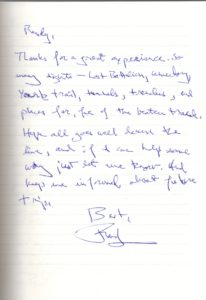 Randy,
Thanks for a great experience. So
many sights — Lost Battalion, cemetery,
York trail, tunnels, trenches, and
places far, far off the beaten track.
Hope all goes well down the
line, and if I can help some
way just let me know. And
keep me informed about future
trips.
Best,